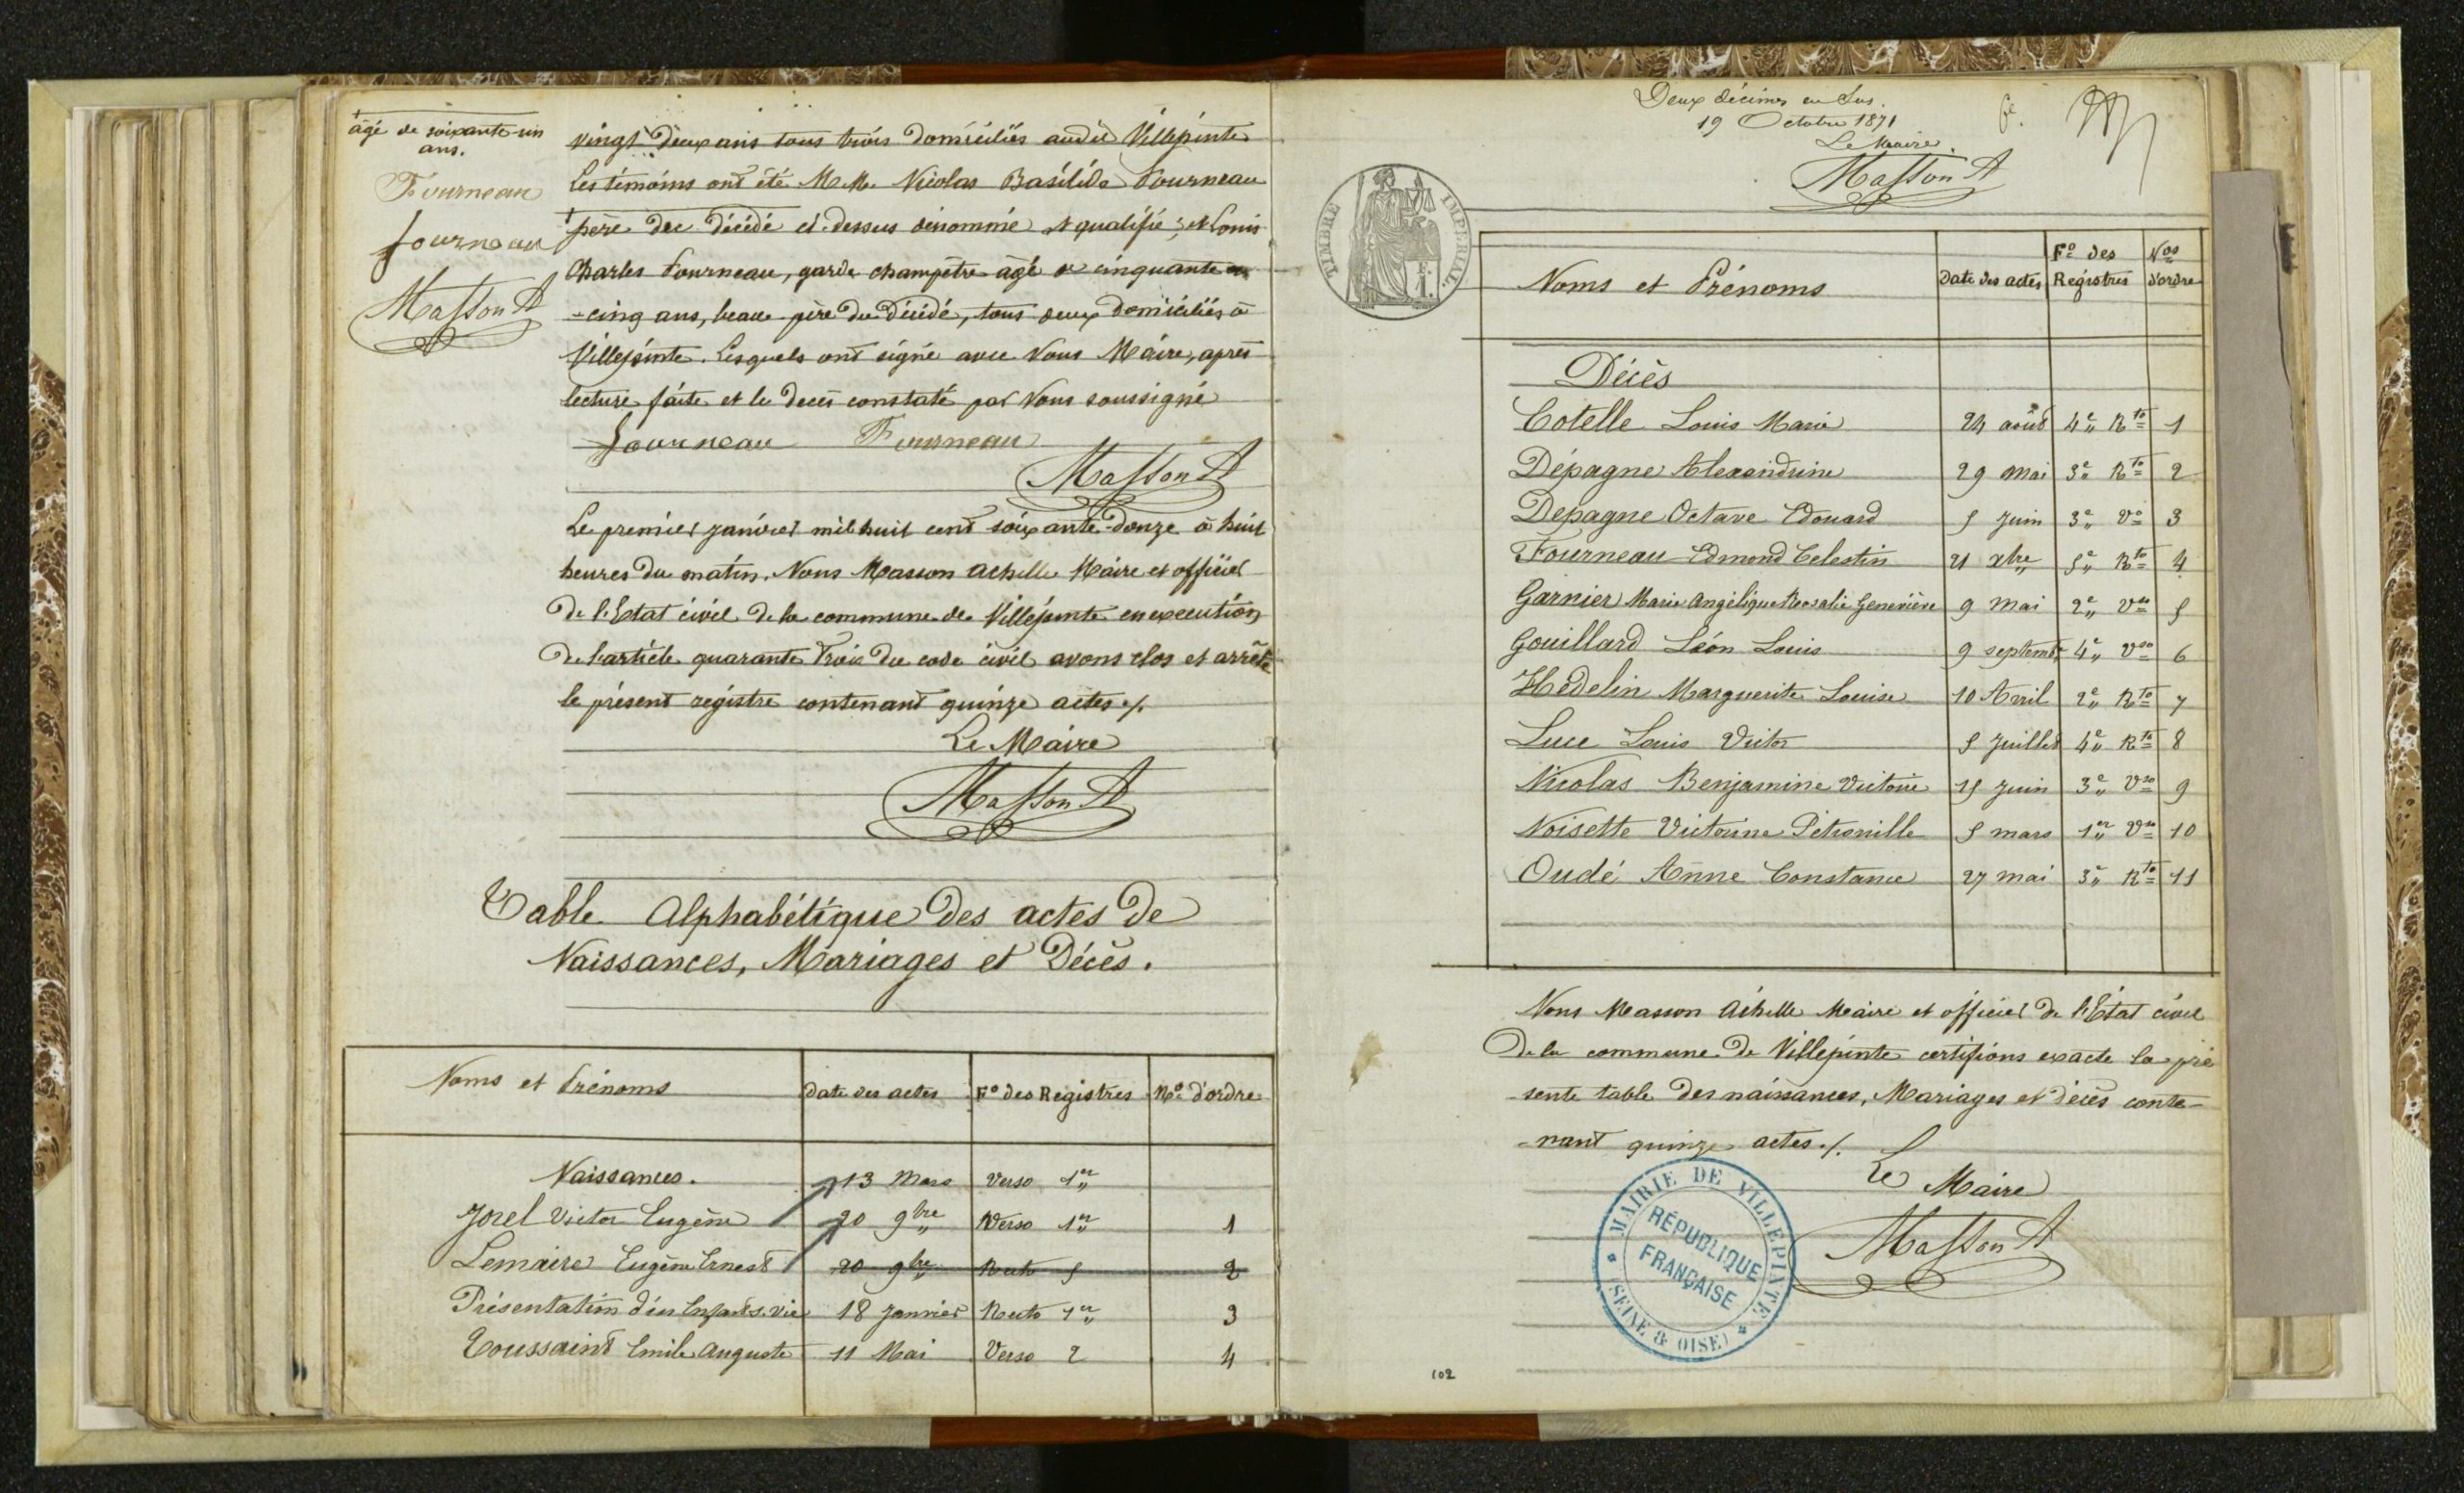 âgé de soixante-un
ans.
Fourneau
fourneau
Masson A
vingt deux ans tous trois domiciliés audit Villepinte
Les témoins ont été M.M. Nicolas Basilide Fourneau
père du décédé ci-dessus dénommé et qualifié ; et Louis
Charles Fourneau, garde champêtre âgé de cinquante
-cinq ans, beau-père du décédé, tous deux domiciliés à
Villepinte. Lesquels ont signé avec Nous Maire, après
lecture faite et le décès constaté par Nous soussigné
fourneau Fourneau
Masson A
Le premier janvier mil huit cent soixante-douze à huit
heures du matin. Nous Masson Achille Maire et officier
de l'Etat civil de la commune de Villepinte en execution
de l'article quarante trois du code civil avons clos et arrêté
le présent registre contenant quinze actes ./.
Le Maire
Masson A
Table Alphabétique des actes de
Naissances, Mariages et Décès.
Noms et Prénoms Date des actes Fº des Registres Nº d'ordre
Naissances. 13 Mars Verso 1er
Jorel Victor Eugène 20 9bre Verso 1er 1
Lemaire Eugène Ernest 20 9bre Recto 5 2
Présentation d'un Enfant s. vie 18 Janvier Recto 1er 3
Toussaint Emile Auguste 11 Mai Verso 2 4
Deux décimes en sus.
19 Octobre 1871
Le Maire.
Masson A
TIMBRE IMPERIAL
Noms et Prénoms Date des actes Fº des Registres Nos d'ordre
Décès
Cotelle Louis Marie 24 août 4e Rto 1
Dépagne Alexandrine 29 mai 3e Rto 2
Depagne Octave Edouard 5 Juin 3e Vo 3
Fourneau Edmond Celestin 21 xbre 5e Rto 4
Garnier Marie Angélique Rosalie Geneviève 9 mai 2e Vso 5
Gouillard Léon Louis 9 septemb. 4e Vso 6
Hédelin Marguerite Louise 10 Avril 2e Rto 7
Luce Louis Victor 5 Juillet 4e Rto 8
Nicolas Benjamine Victoire 15 Juin 3e Vso 9
Noisette Victorine Pétronille 5 mars 1er Vso 10
Oudé Anne Constance 27 mai 3e Rto 11
Nous Masson Achille Maire et officier de l'Etat civil
de la commune de Villepinte certifions exacte la pré
sente table des naissances, Mariages et décès conte-
-nant quinze actes ./.
Le Maire
Masson A
MAIRIE DE VILLEPINTE
RÉPUBLIQUE
FRANÇAISE
(SEINE & OISE)
102